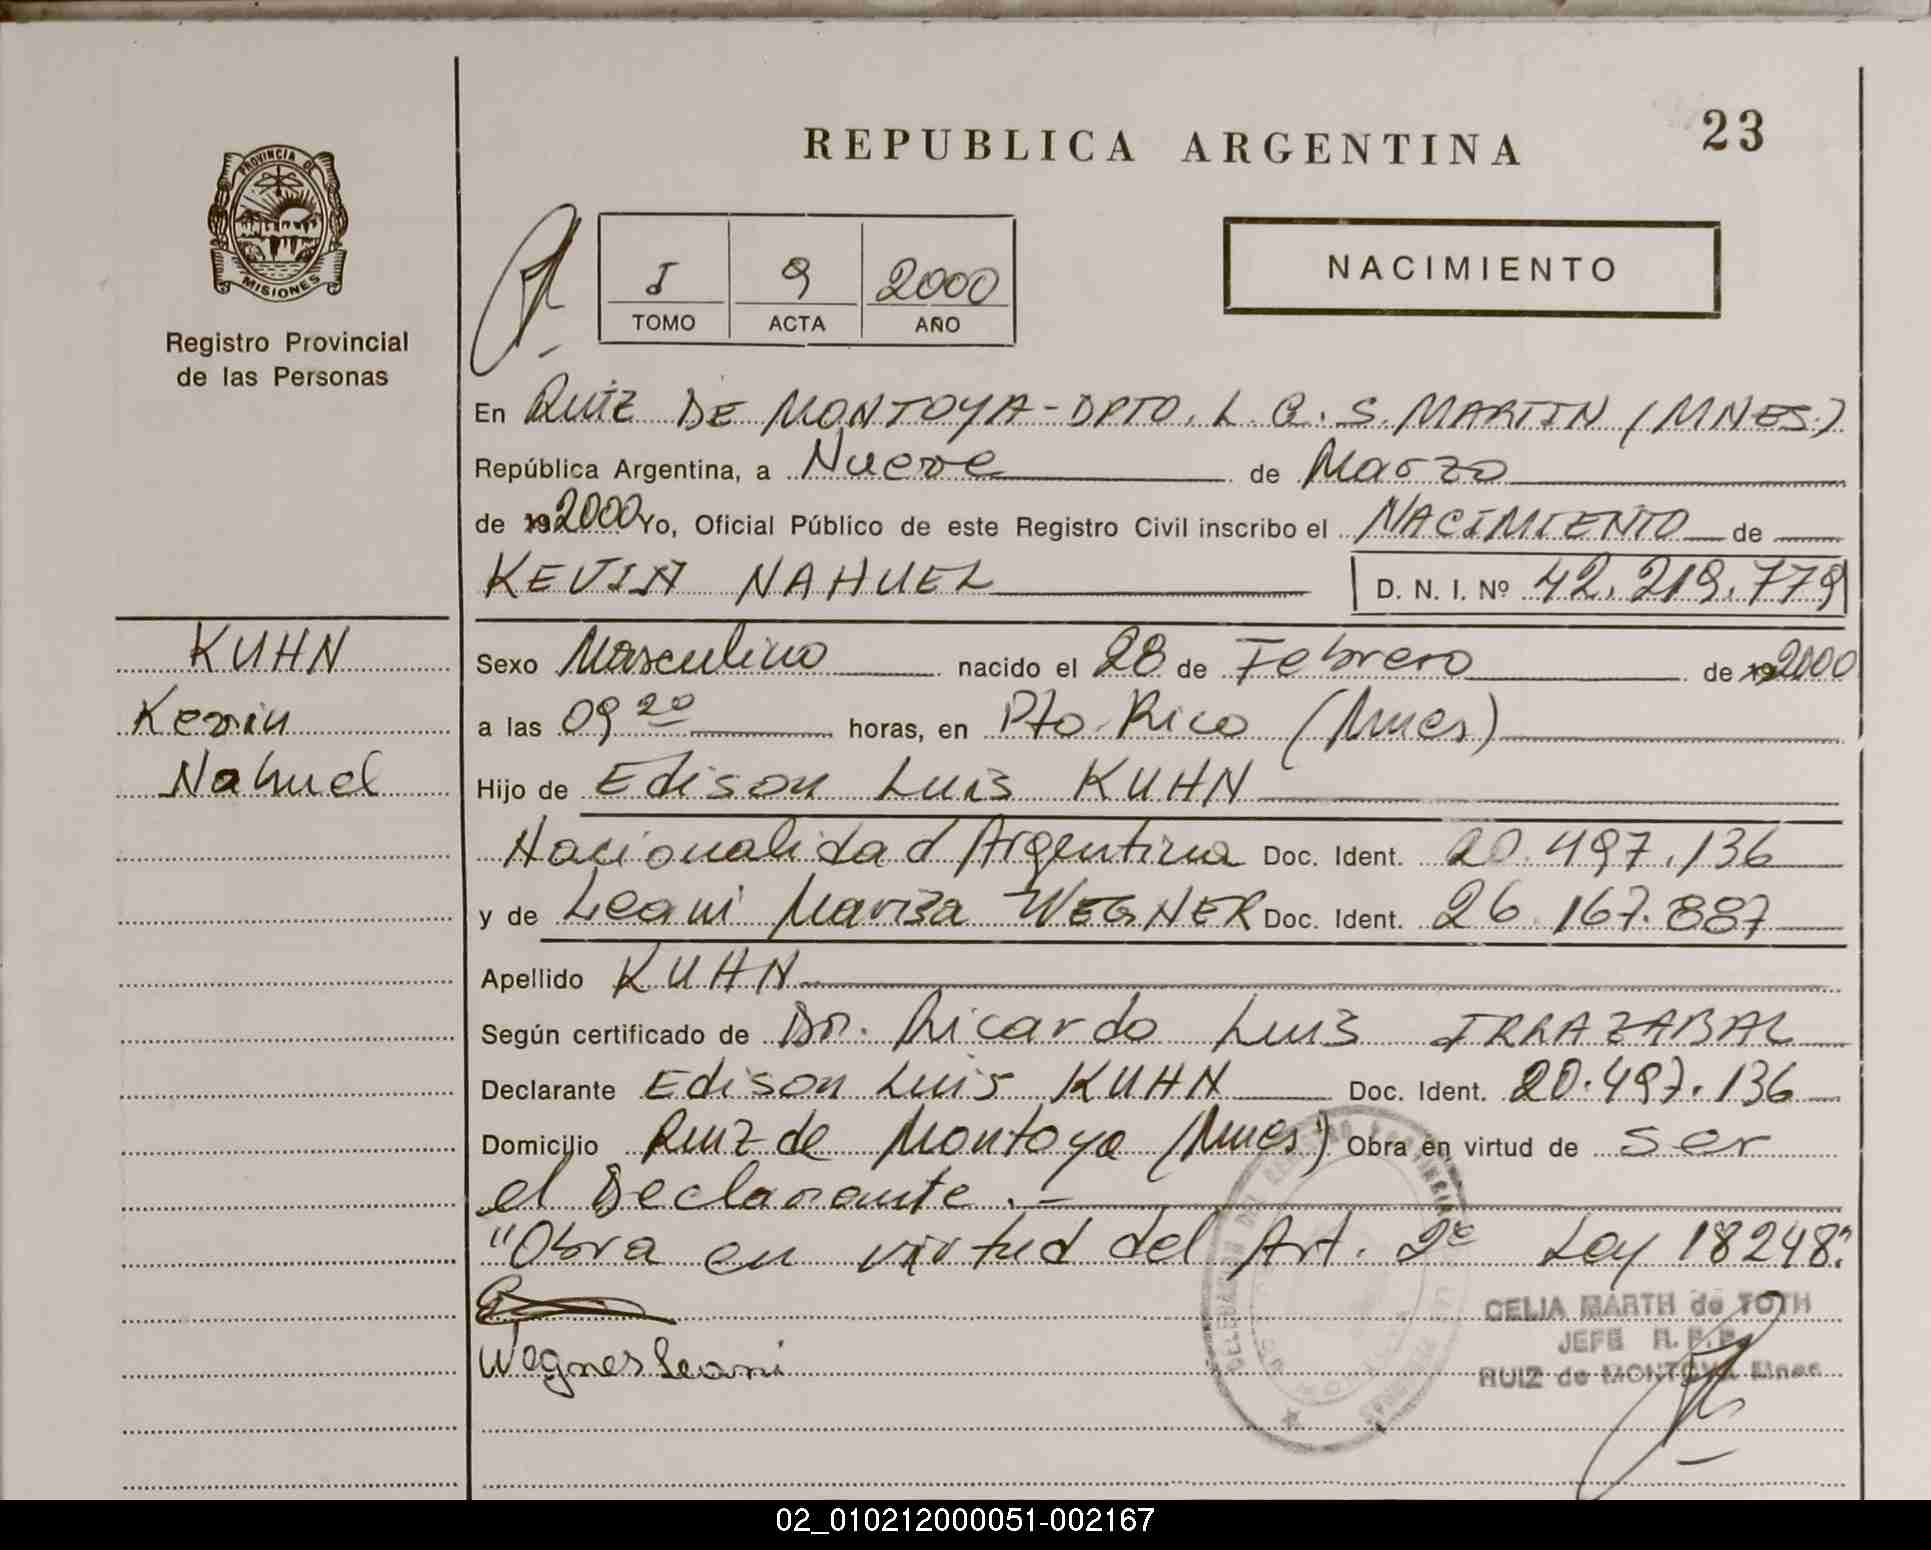 REPUBLICA ARGENTINA
23
PROVINCIA DE
MISIONES
Registro Provincial
de las Personas
I 9 2000
TOMO ACTA AÑO
NACIMIENTO
En RUIZ DE MONTOYA - DPTO. L. G. S. MARTIN (MNES.)
República Argentina, a Nueve de Marzo
de 19 2000 Yo, Oficial Público de este Registro Civil inscribo el NACIMIENTO de
KEVIN NAHUEL D. N. I. Nº 42.219.779
KUHN
Kevin
Nahuel
Sexo Masculino nacido el 28 de Febrero de 19 2000
a las 09 20 horas, en Pto. Rico (Mnes)
Hijo de Edison Luis KUHN
Nacionalidad Argentina Doc. Ident. 20.497.136
y de Leani Mariza WEGNER Doc. Ident. 26.167.887
Apellido KUHN
Según certificado de Dr. Ricardo Luis IRRAZABAL
Declarante Edison Luis KUHN Doc. Ident. 20.497.136
Domicilio Ruiz de Montoya (Mnes) Obra en virtud de ser
el Declarante.-
"Obra en virtud del Art. 2º Ley 18248"
Wegner Leani
CELIA MARTH de TOTH
JEFE R. P. P.
RUIZ de MONTOYA Mnes.
02_010212000051-002167